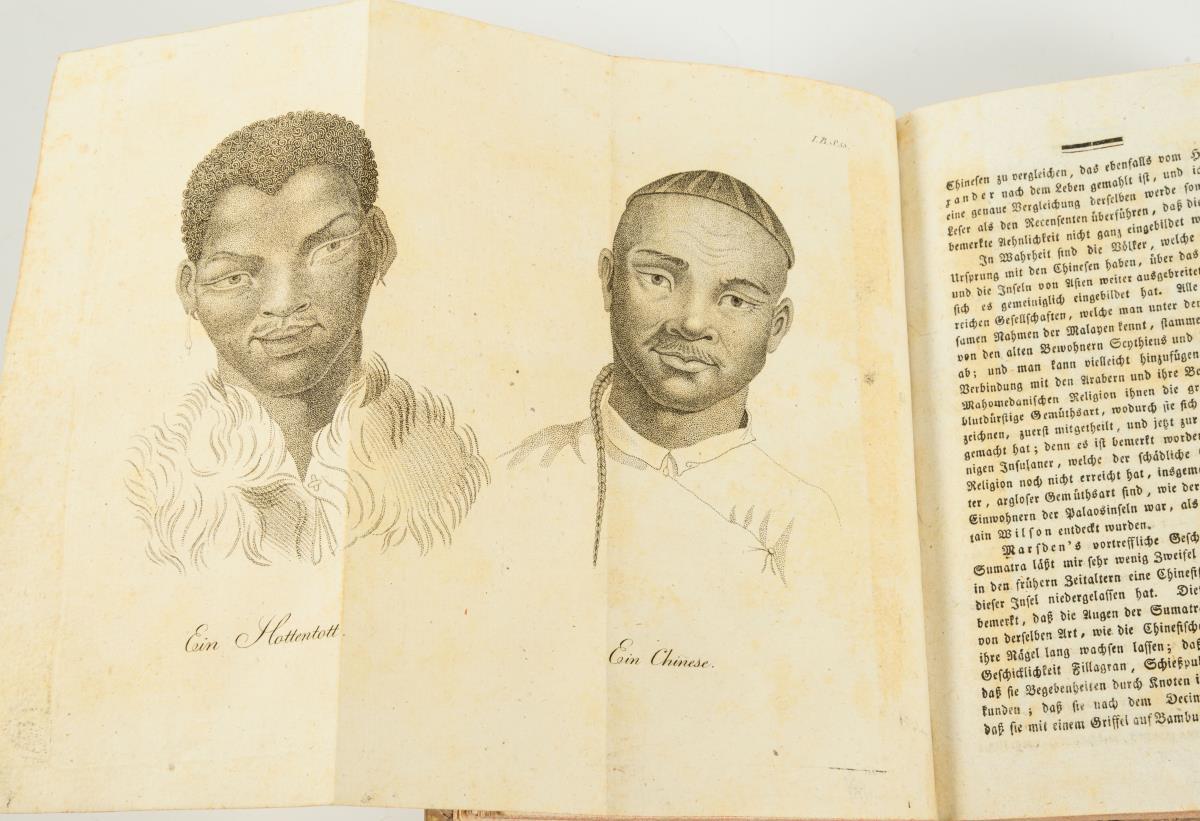 Ein Hottentott.
Ein Chinese.
Chinesen zu vergleichen, das ebenfalls vom H
xander nach dem Leben gemahlt ist, und ic
eine genaue Vergleichung derselben werde son
Leser als den Recensenten überführen, daß die
bemerkte Aehnlichkeit nicht ganz eingebildet w
In Wahrheit sind die Völker, welche
Ursprung mit den Chinesen haben, über das
und die Inseln von Asien weiter ausgebreitet
sich es gemeiniglich eingebildet hat. Alle
reichen Gesellschaften, welche man unter der
samen Nahmen der Malayen kennt, stammen
von den alten Bewohnern Scythiens und
ab; und man kann vielleicht hinzufügen
Verbindung mit den Arabern und ihre Be
Mahomedanischen Religion ihnen die gr
blutdürstige Gemüthsart, wodurch sie sich
zeichnen, zuerst mitgetheilt, und jetzt zur
gemacht hat; denn es ist bemerkt worden
nigen Insulaner, welche der schädliche
Religion noch nicht erreicht hat, insgeme
ter, argloser Gemüthsart sind, wie der
Einwohnern der Palaosinseln war, als
tain Wilson entdeckt wurden.
Marsden's vortreffliche Gesch
Sumatra läßt mir sehr wenig Zweifel
in den frühern Zeitaltern eine Chinesisc
dieser Insel niedergelassen hat. Dies
bemerkt, daß die Augen der Sumatra
von derselben Art, wie die Chinesische
ihre Nägel lang wachsen lassen; daß
Geschicklichkeit Fillagran, Schießpul
daß sie Begebenheiten durch Knoten i
kunden; daß sie nach dem Decim
daß sie mit einem Griffel auf Bambu